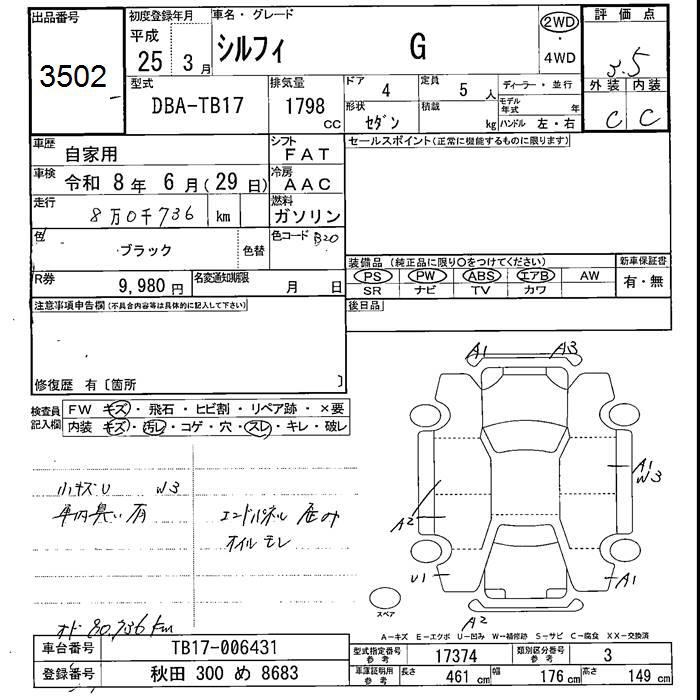 出品番号
3502
初度登録年月
平成
25 3 月
車名・グレード
シルフィ G
2WD
4WD
評価点
3.5
外装 内装
C C
型式
DBA-TB17
排気量
1798
cc
ドア 4
定員 5 人
形状 セダン
積載 kg
ディーラー・並行
モデル年式 年
ハンドル 左・右
車歴 自家用
シフト FAT
車検 令和 8 年 6 月(29 日)
冷房 AAC
走行 8万0千736 km
燃料 ガソリン
色 ブラック 色替
色コード B20
R券 9,980 円
名変通知期限 月 日
セールスポイント(正常に機能するものに限ります)
装備品(純正品に限り○をつけてください)
新車保証書
PS PW ABS エアB AW
有・無
SR ナビ TV カワ
後日品
注意事項申告欄(不具合内容等は具体的に記入して下さい)
修復歴 有〔箇所 〕
検査員記入欄
FW キズ・飛石・ヒビ割・リペア跡・×要
内装 キズ・汚レ・コゲ・穴・スレ・キレ・破レ
小キズU W3
車内臭い有
エンドパネル 凹み
オイルモレ
オド80,736km
A1 A3
A1
W3
A2
U1
A1
A2
スペア
A−キズ E−エクボ U−凹み W−補修跡 S−サビ C−腐食 XX−交換済
車台番号 TB17-006431
登録番号 秋田 300 め 8683
型式指定番号 参考 17374
類別区分番号 参考 3
車庫証明用 参考 長さ 461 cm 幅 176 cm 高さ 149 cm